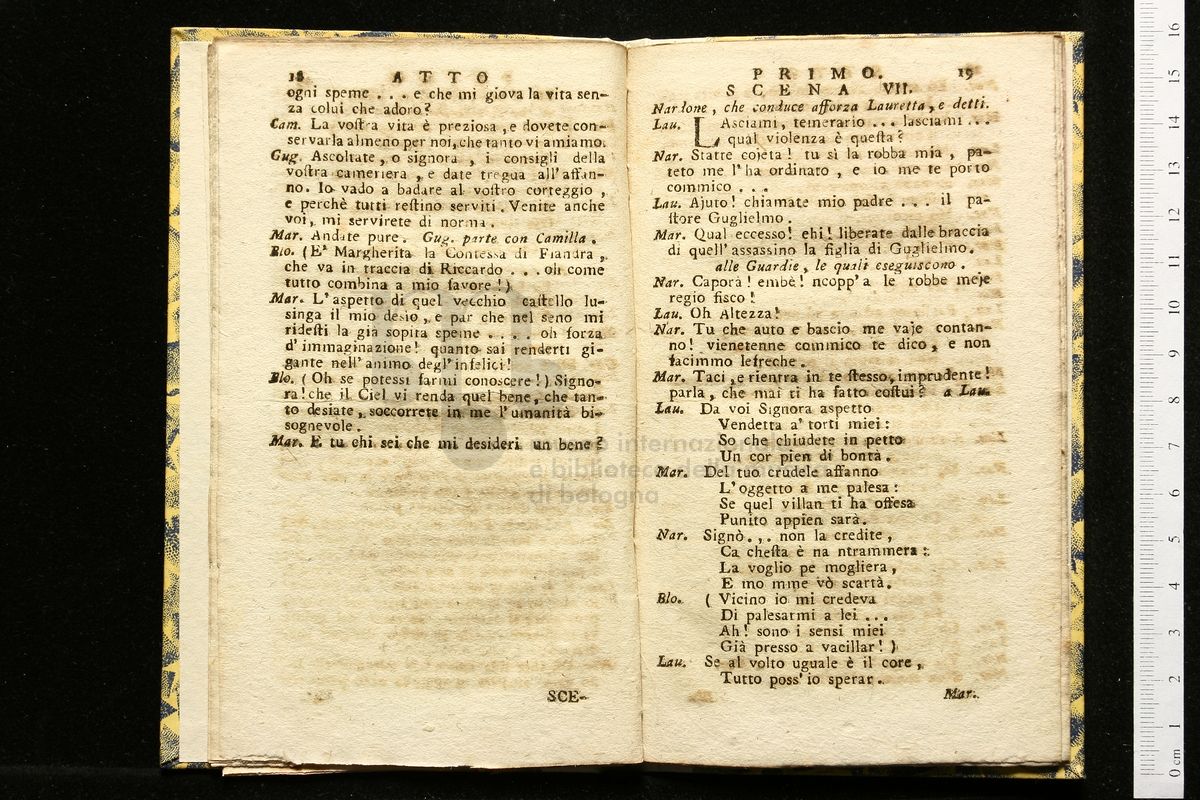 18 ATTO
ogni speme . . . e che mi giova la vita sen-
za colui che adoro?
Cam. La vostra vita è preziosa, e dovete con-
servarla almeno per noi, che tanto vi amiamo.
Gug. Ascoltate, o signora, i consigli della
vostra cameriera, e date tregua all' affan-
no. Io vado a badare al vostro corteggio,
e perchè tutti restino serviti. Venite anche
voi, mi servirete di norma.
Mar. Andate pure. Gug. parte con Camilla.
Blo. (E' Margherita la Contessa di Fiandra,
che va in traccia di Riccardo . . . oh come
tutto combina a mio favore!)
Mar. L'aspetto di quel vecchio castello lu-
singa il mio desio, e par che nel seno mi
ridesti la già sopita speme . . . . oh forza
d'immaginazione! quanto sai renderti gi-
gante nell' animo degl' infelici!
Blo. (Oh se potessi farmi conoscere!) Signo-
ra! che il Ciel vi renda quel bene, che tan-
to desiate, soccorrete in me l'umanità bi-
sognevole.
Mar. E tu chi sei che mi desideri un bene?
SCE-
PRIMO. 19
SCENA VII.
Nardone, che conduce afforza Lauretta, e detti.
Lau. LAsciami, temerario . . . lasciami . . .
qual violenza è questa?
Nar. Statte cojeta! tu sì la robba mia, pa-
teto me l'ha ordinato, e io me te porto
commico . . .
Lau. Ajuto! chiamate mio padre . . . il pa-
store Guglielmo.
Mar. Qual eccesso! ehi! liberate dalle braccia
di quell' assassino la figlia di Guglielmo.
alle Guardie, le quali eseguiscono.
Nar. Caporà! embè! ncopp'a le robbe meje
regio fisco!
Lau. Oh Altezza!
Nar. Tu che auto e bascio me vaje contan-
no! vienetenne commico te dico, e non
facimmo lefreche.
Mar. Taci, e rientra in te stesso, imprudente!
parla, che mai ti ha fatto costui? a Lau.
Lau. Da voi Signora aspetto
Vendetta a' torti miei:
So che chiudete in petto
Un cor pien di bontà.
Mar. Del tuo crudele affanno
L'oggetto a me palesa:
Se quel villan ti ha offesa
Punito appien sarà.
Nar. Signò . . . non la credite,
Ca chesta è na ntrammera:
La voglio pe mogliera,
E mo mme vò scartà.
Blo. (Vicino io mi credeva
Di palesarmi a lei . . .
Ah! sono i sensi miei
Già presso a vacillar!)
Lau. Se al volto uguale è il core,
Tutto poss' io sperar.
Mar.
museo internazionale
e biblioteca della musica
di bologna
0 cm 1 2 3 4 5 6 7 8 9 10 11 12 13 14 15 16